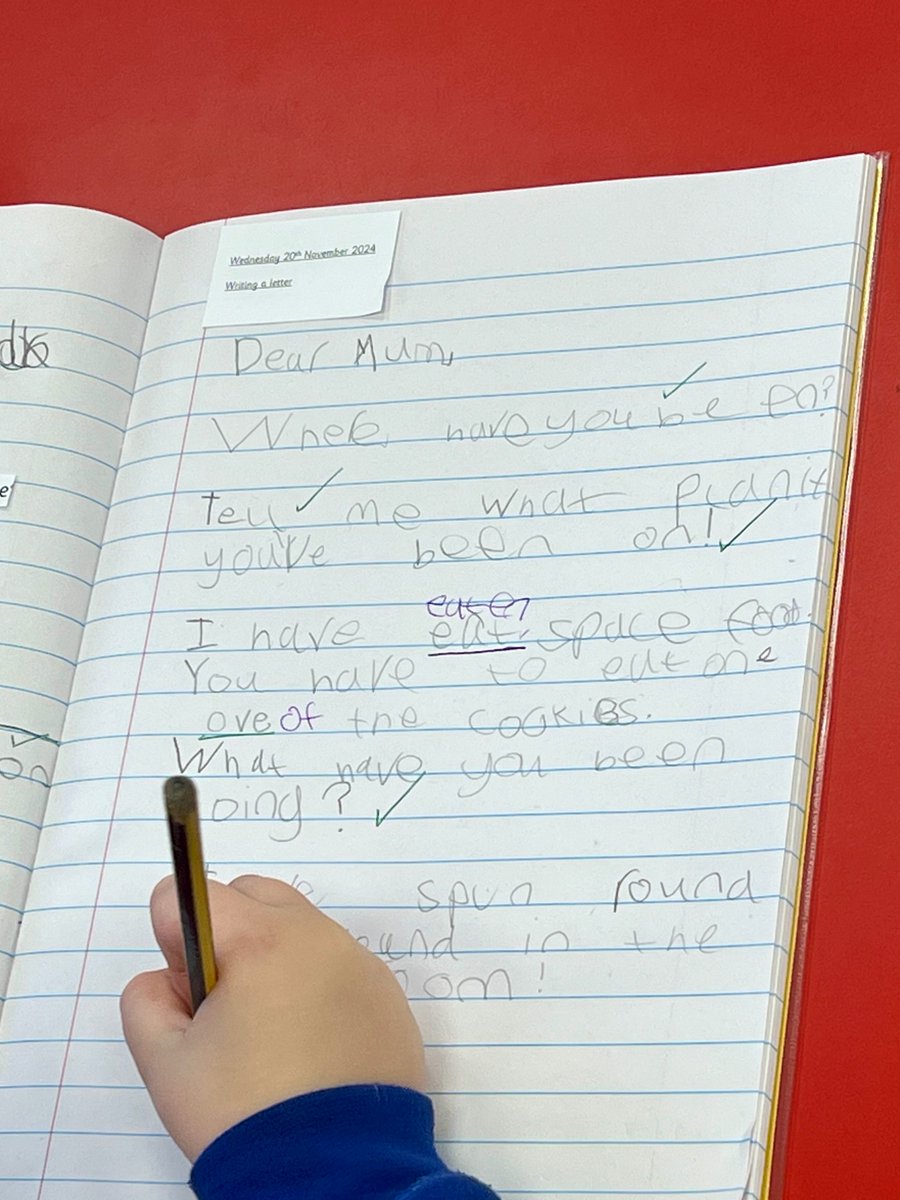 Wednesday 20th November 2024
Writing a letter
Dear Mum,
have you be en?
Tell me what planit
you've been on!
eaten
I have eat space food.
You have to eat one
ove of the cookies.
What have you been
oing?
spun round
ound in the
oom!
on
e